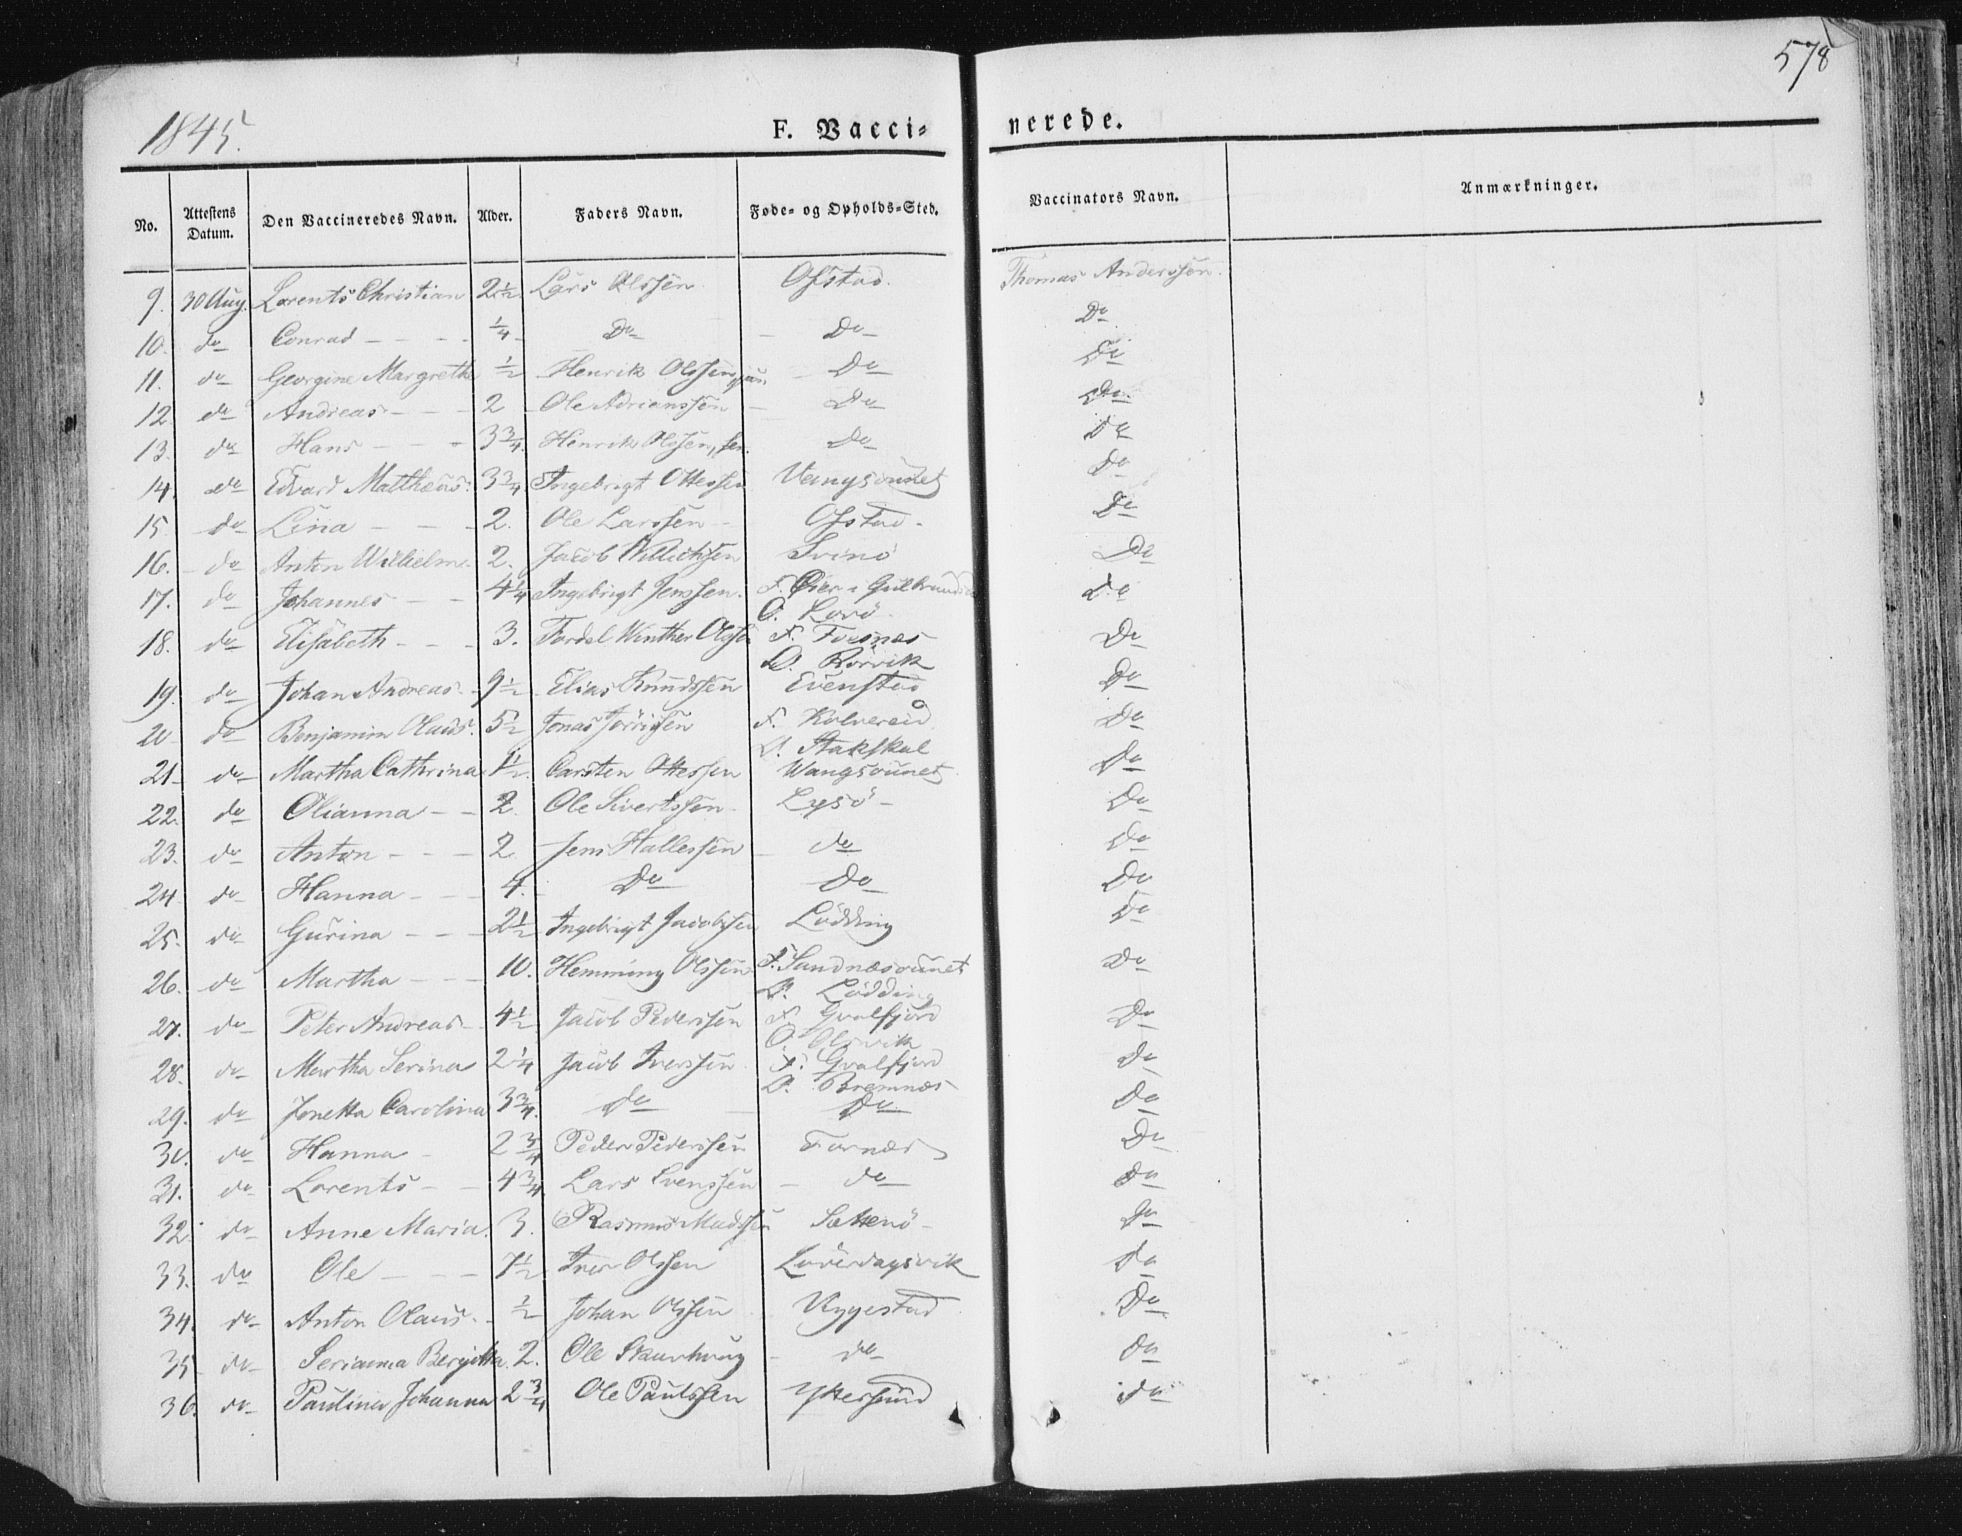 578
1845.
F. Vacci= nerede.
No. Attestens Datum. Den Vaccineredes Navn. Alder. Faders Navn. Føde- og Opholds-Sted. Vaccinators Navn. Anmærkninger.
9. 30 Aug. Lorents Christian 2½ Lars Olssen Ofstad. Thomas Anderssen.
10. do Conrad - - - ¼ Do - Do Do
11. do Georgine Margrethe ½ Henrik Olssen, jun. - Do Do
12. do Andreas - - - 2 Ole Adrianssen - Do Do
13. do Hans - - - 3¾ Henrik Olssen, sen. Do Do
14. do Edvard Mattheus 3¾ Ingebrigt Ottessen Do
15. do Lina - - - 2. Ole Larssen - Ofstad - Do
16. do Anton Wilhelm 2. Jacob Svinö Do
17. do Johannes - - 4¼ Ingebrigt Jenssen. F. Öier i Gulbrands Do
O. Lovö
18. do Elisabeth - - - 3. Fordel Winther Olssen F. Fosnæs Do
O. Rörvik
19. do Johan Andreas - 9½ Elias Knudssen Evenstad Do
20 do Benjamin Olaus. 5½ Jonas F. Kolvereid Do
O.
21 do Martha Cathrina 1½ Carsten Ottessen Wangsvunet Do
22. do Olianna - - 2. Ole Sivertssen - Lysö - Do
23. do Anton - - - 2. Jens Hallessen - do Do
24. do Hanna - - - 4. Do Do Do
25. do Gurina - - - 2½ Ingebrigt Jacobssen Lödding Do
26. do Martha - - - 10. Hemming Olssen F. Sandnæsvunet Do
O. Lödding
27. do Peter Andreas - 4½ Jacob Pederssen F. Gvalfjord Do
O. Olsvik
28. do Martha Serina 2¼ Jacob Iverssen F. Gvalfjord Do
O. Bremnæs
29. do Jonetta Carolina 3¾ Do Do Do
30. do Hanna - 2¾ Peder Pederssen Fornæs Do
31. do Lorents - - 4¾ Lars Svenssen - do Do
32. do Anne Maria. 3. Rasmus Madssen Sætterö - Do
33. do Ole - - - 7½ Iver Olssen Löverdagsvik Do
34. do Anton Olaus - ½ Johan Olssen Vyggestad Do
35 do Serianna Bergitta. 2. Ole Skavhoug - do Do
36. do Paulina Johanna 2¾ Ole Paulssen Yttersund do